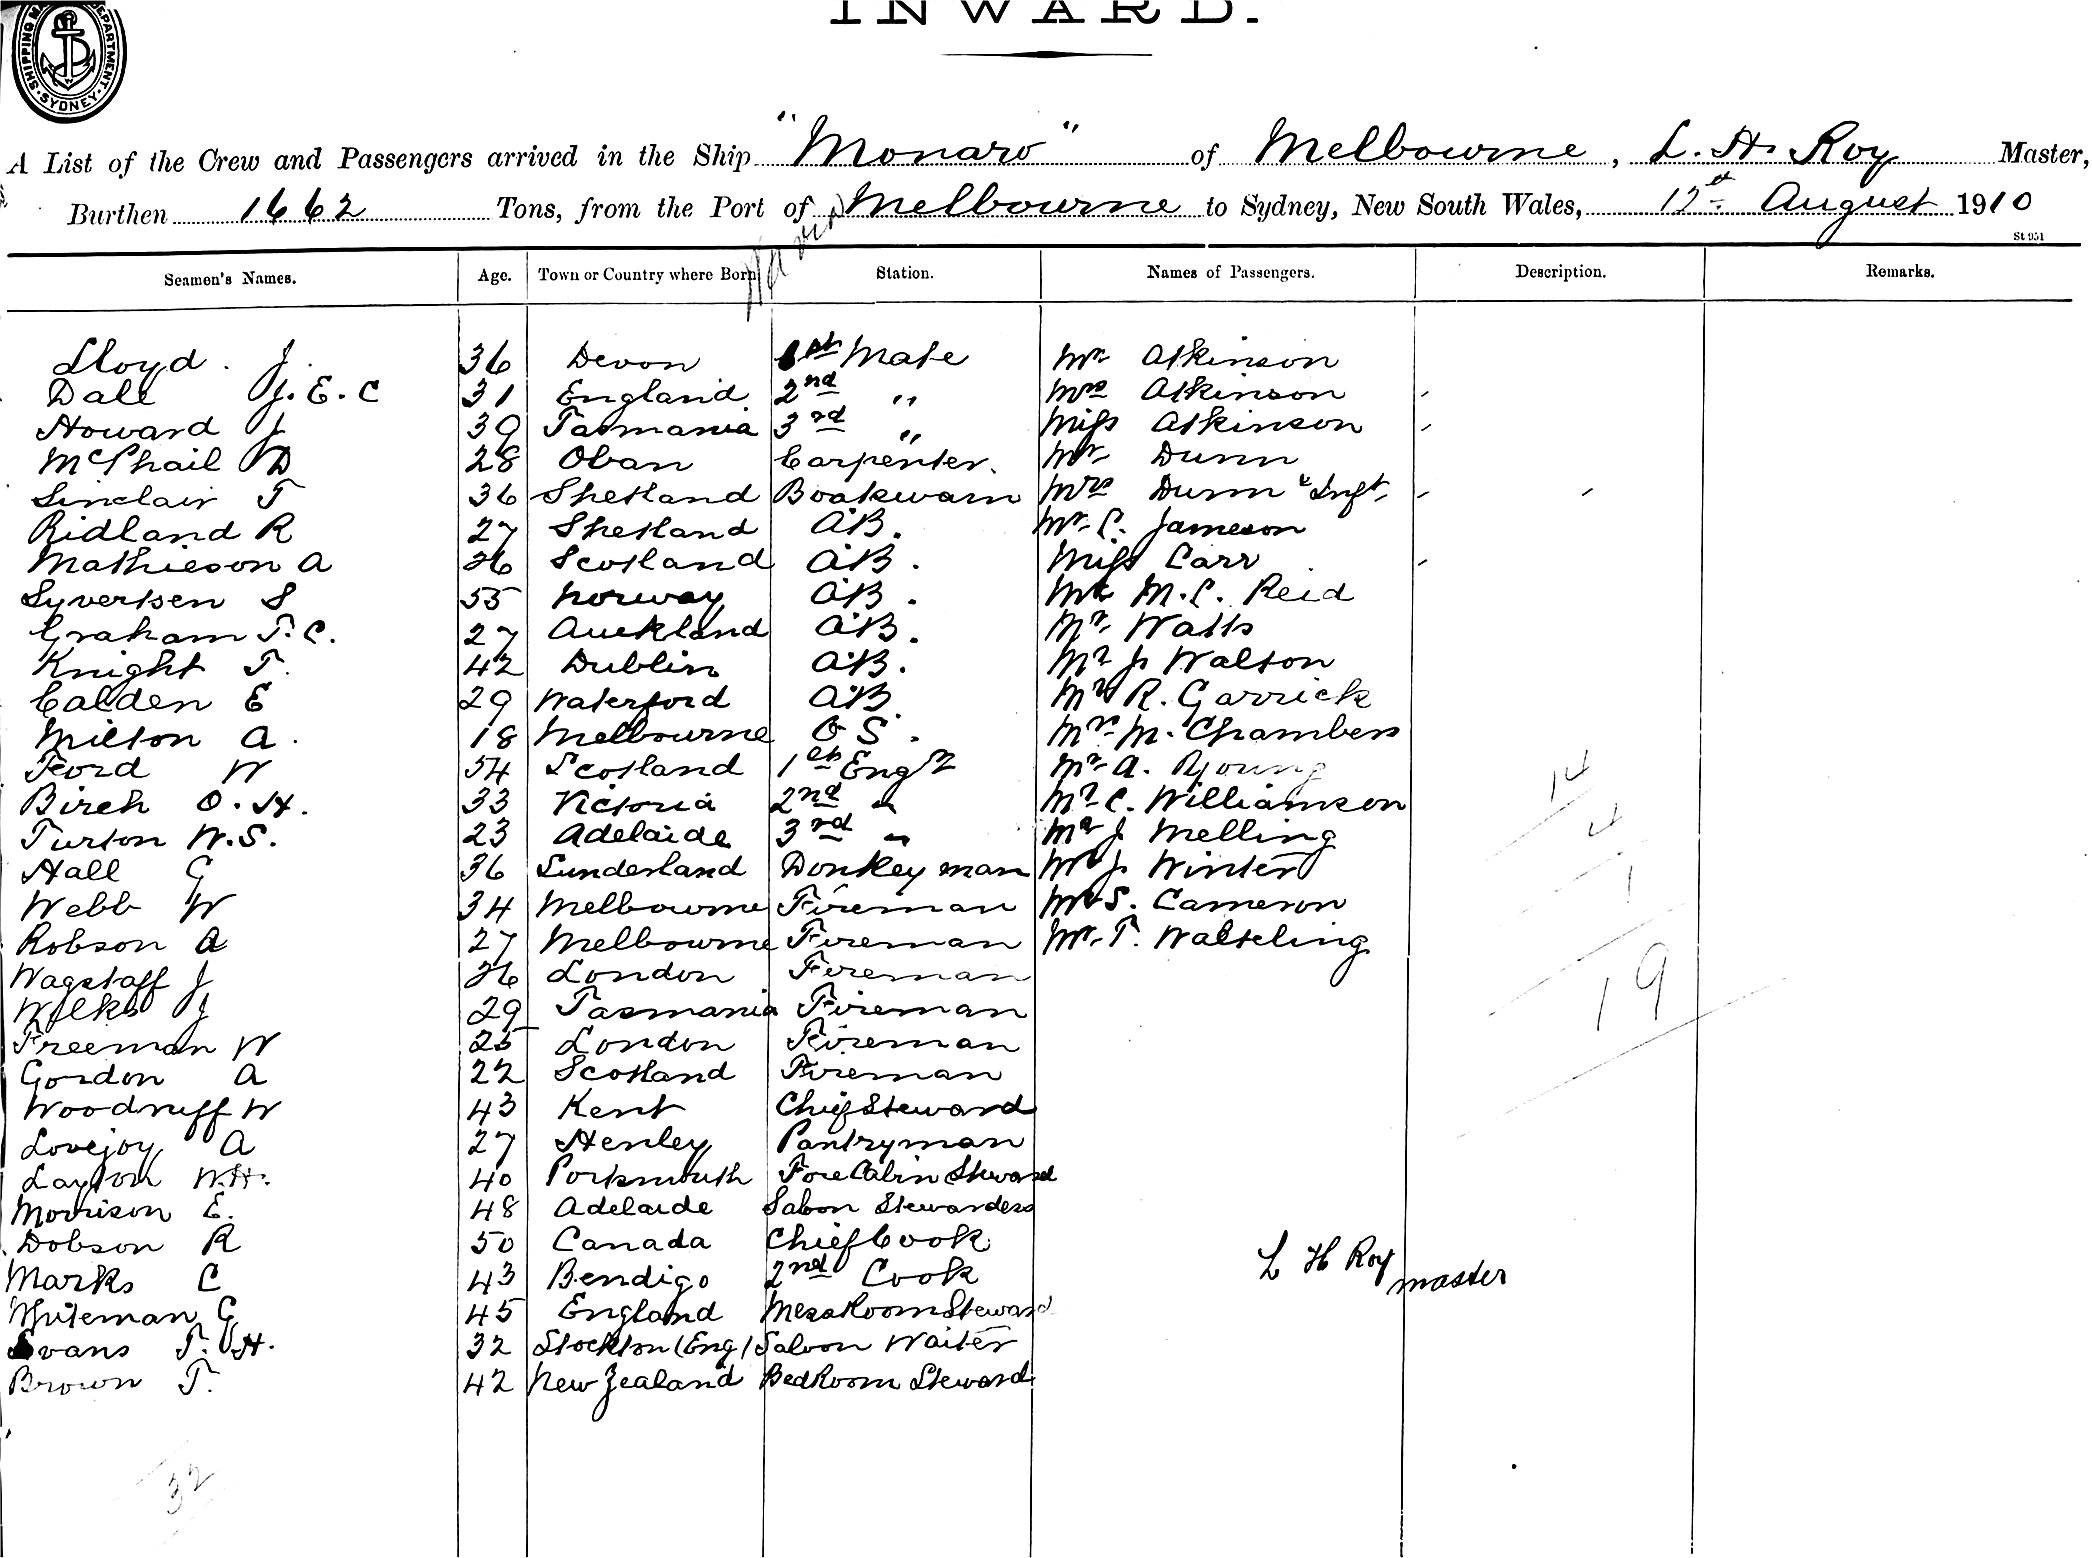 INWARD.
SHIPPING MA DEPARTMENT. SYDNEY
A List of the Crew and Passengers arrived in the Ship "Monaro" of Melbourne, L. H. Roy Master,
Burthen 1662 Tons, from the Port of Melbourne to Sydney, New South Wales, 12th August 1910
St 951
Seamen's Names. Age. Town or Country where Born Station. Names of Passengers. Description. Remarks.
Lloyd. J. 36 Devon 1st Mate Mr Atkinson
Dall J. E. C 31 England 2nd " Mrs Atkinson
Howard J 39 Tasmania 3rd " Miss Atkinson
McPhail D 28 Oban Carpenter. Mr Dunn
Sinclair T 36 Shetland Boatswain Mrs Dunn & Inft.
Ridland R 27 Shetland AB. Mr. C. Jameson
Mathieson A 26 Scotland AB. Miss Carr
Syvertsen S 55 Norway AB. Mr M. C. Reid
Graham T. C. 27 Auckland AB. Mr. Watts
Knight T. 42 Dublin AB. Mr J Walton
Calden E 29 Waterford AB. Mr R. Garrick
Milton A. 18 Melbourne O S. Mr. M. Chambers
Ford W 54 Scotland 1st Engr Mr A. Young
Birch O. H. 33 Victoria 2nd " Mr C. Williamson
Turton W. S. 23 Adelaide 3rd " Mr J Melling
Hall G 36 Sunderland Donkeyman Mr J. Winter
Webb W 34 Melbourne Fireman Mr S. Cameron
Robson A 27 Melbourne Fireman Mr. T. Walseling
Wagstaff J 26 London Fireman
Wilks J 29 Tasmania Fireman
Freeman W 25 London Fireman
Gordon A 22 Scotland Fireman
Woodruff W 43 Kent Chief Steward
Lovejoy A 27 Henley Pantryman
Layton W. H. 40 Portsmouth Fore Cabin Steward
Morrison E. 48 Adelaide Saloon Stewardess
Dobson R 50 Canada Chief Cook
Marks C 43 Bendigo 2nd Cook
Whiteman G 45 England Messroom Steward
Evans T. H. 32 Stockton (Eng) Saloon Waiter
Brown T. 42 New Zealand Bedroom Steward
14
4
1
19
L H Roy
master
32